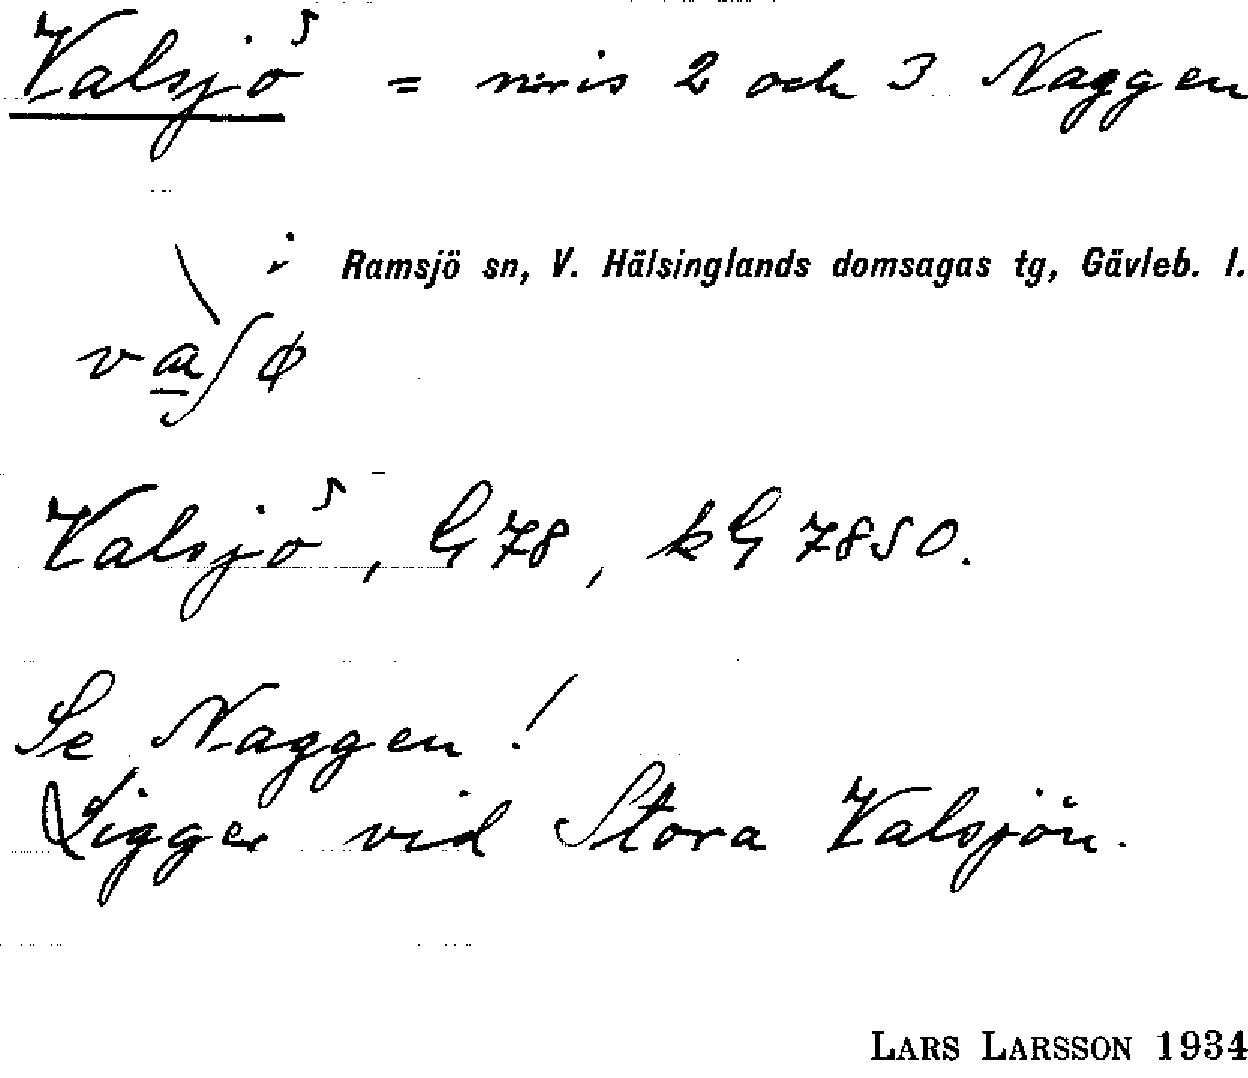 Valsjö = nris 2 och 3 Naggen
i Ramsjö sn, V. Hälsinglands domsagas tg, Gävleb. l.
va̲ʃø
Valsjö, G 78, kG 7850.
Se Naggen!
Ligger vid Stora Valsjön.
LARS LARSSON 1934